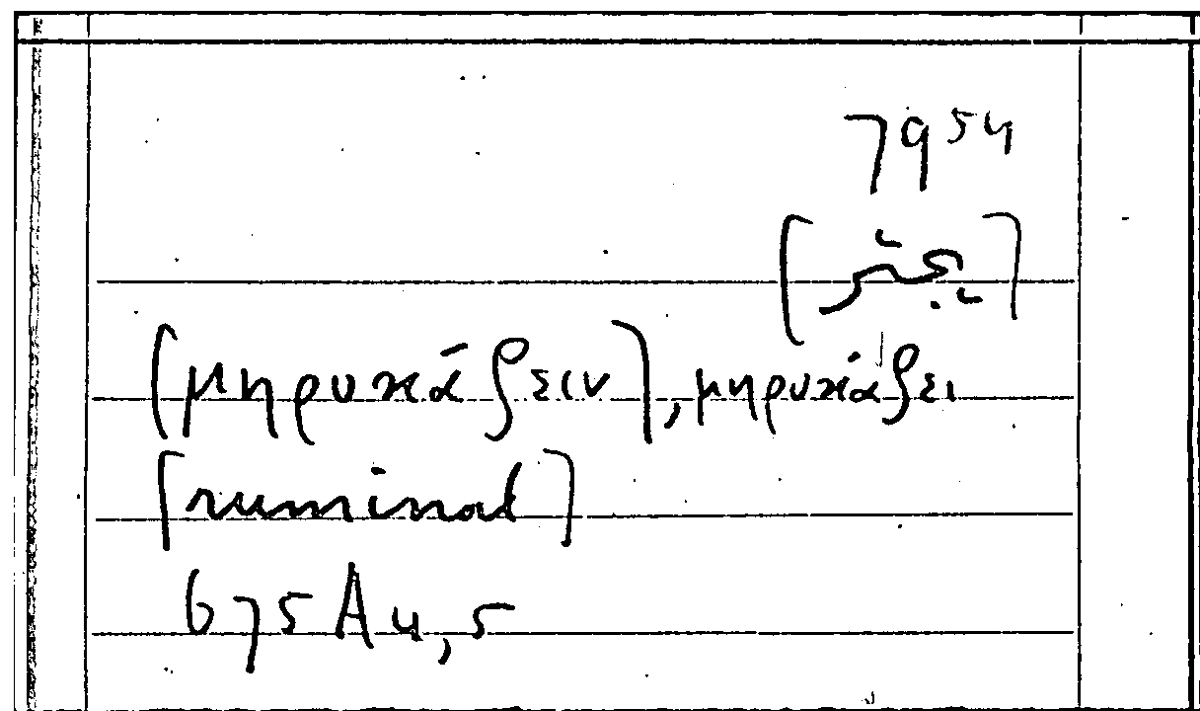 7954
(μηρυκάζειν), μηρυκάζει
[ruminat]
675 A 4, 5